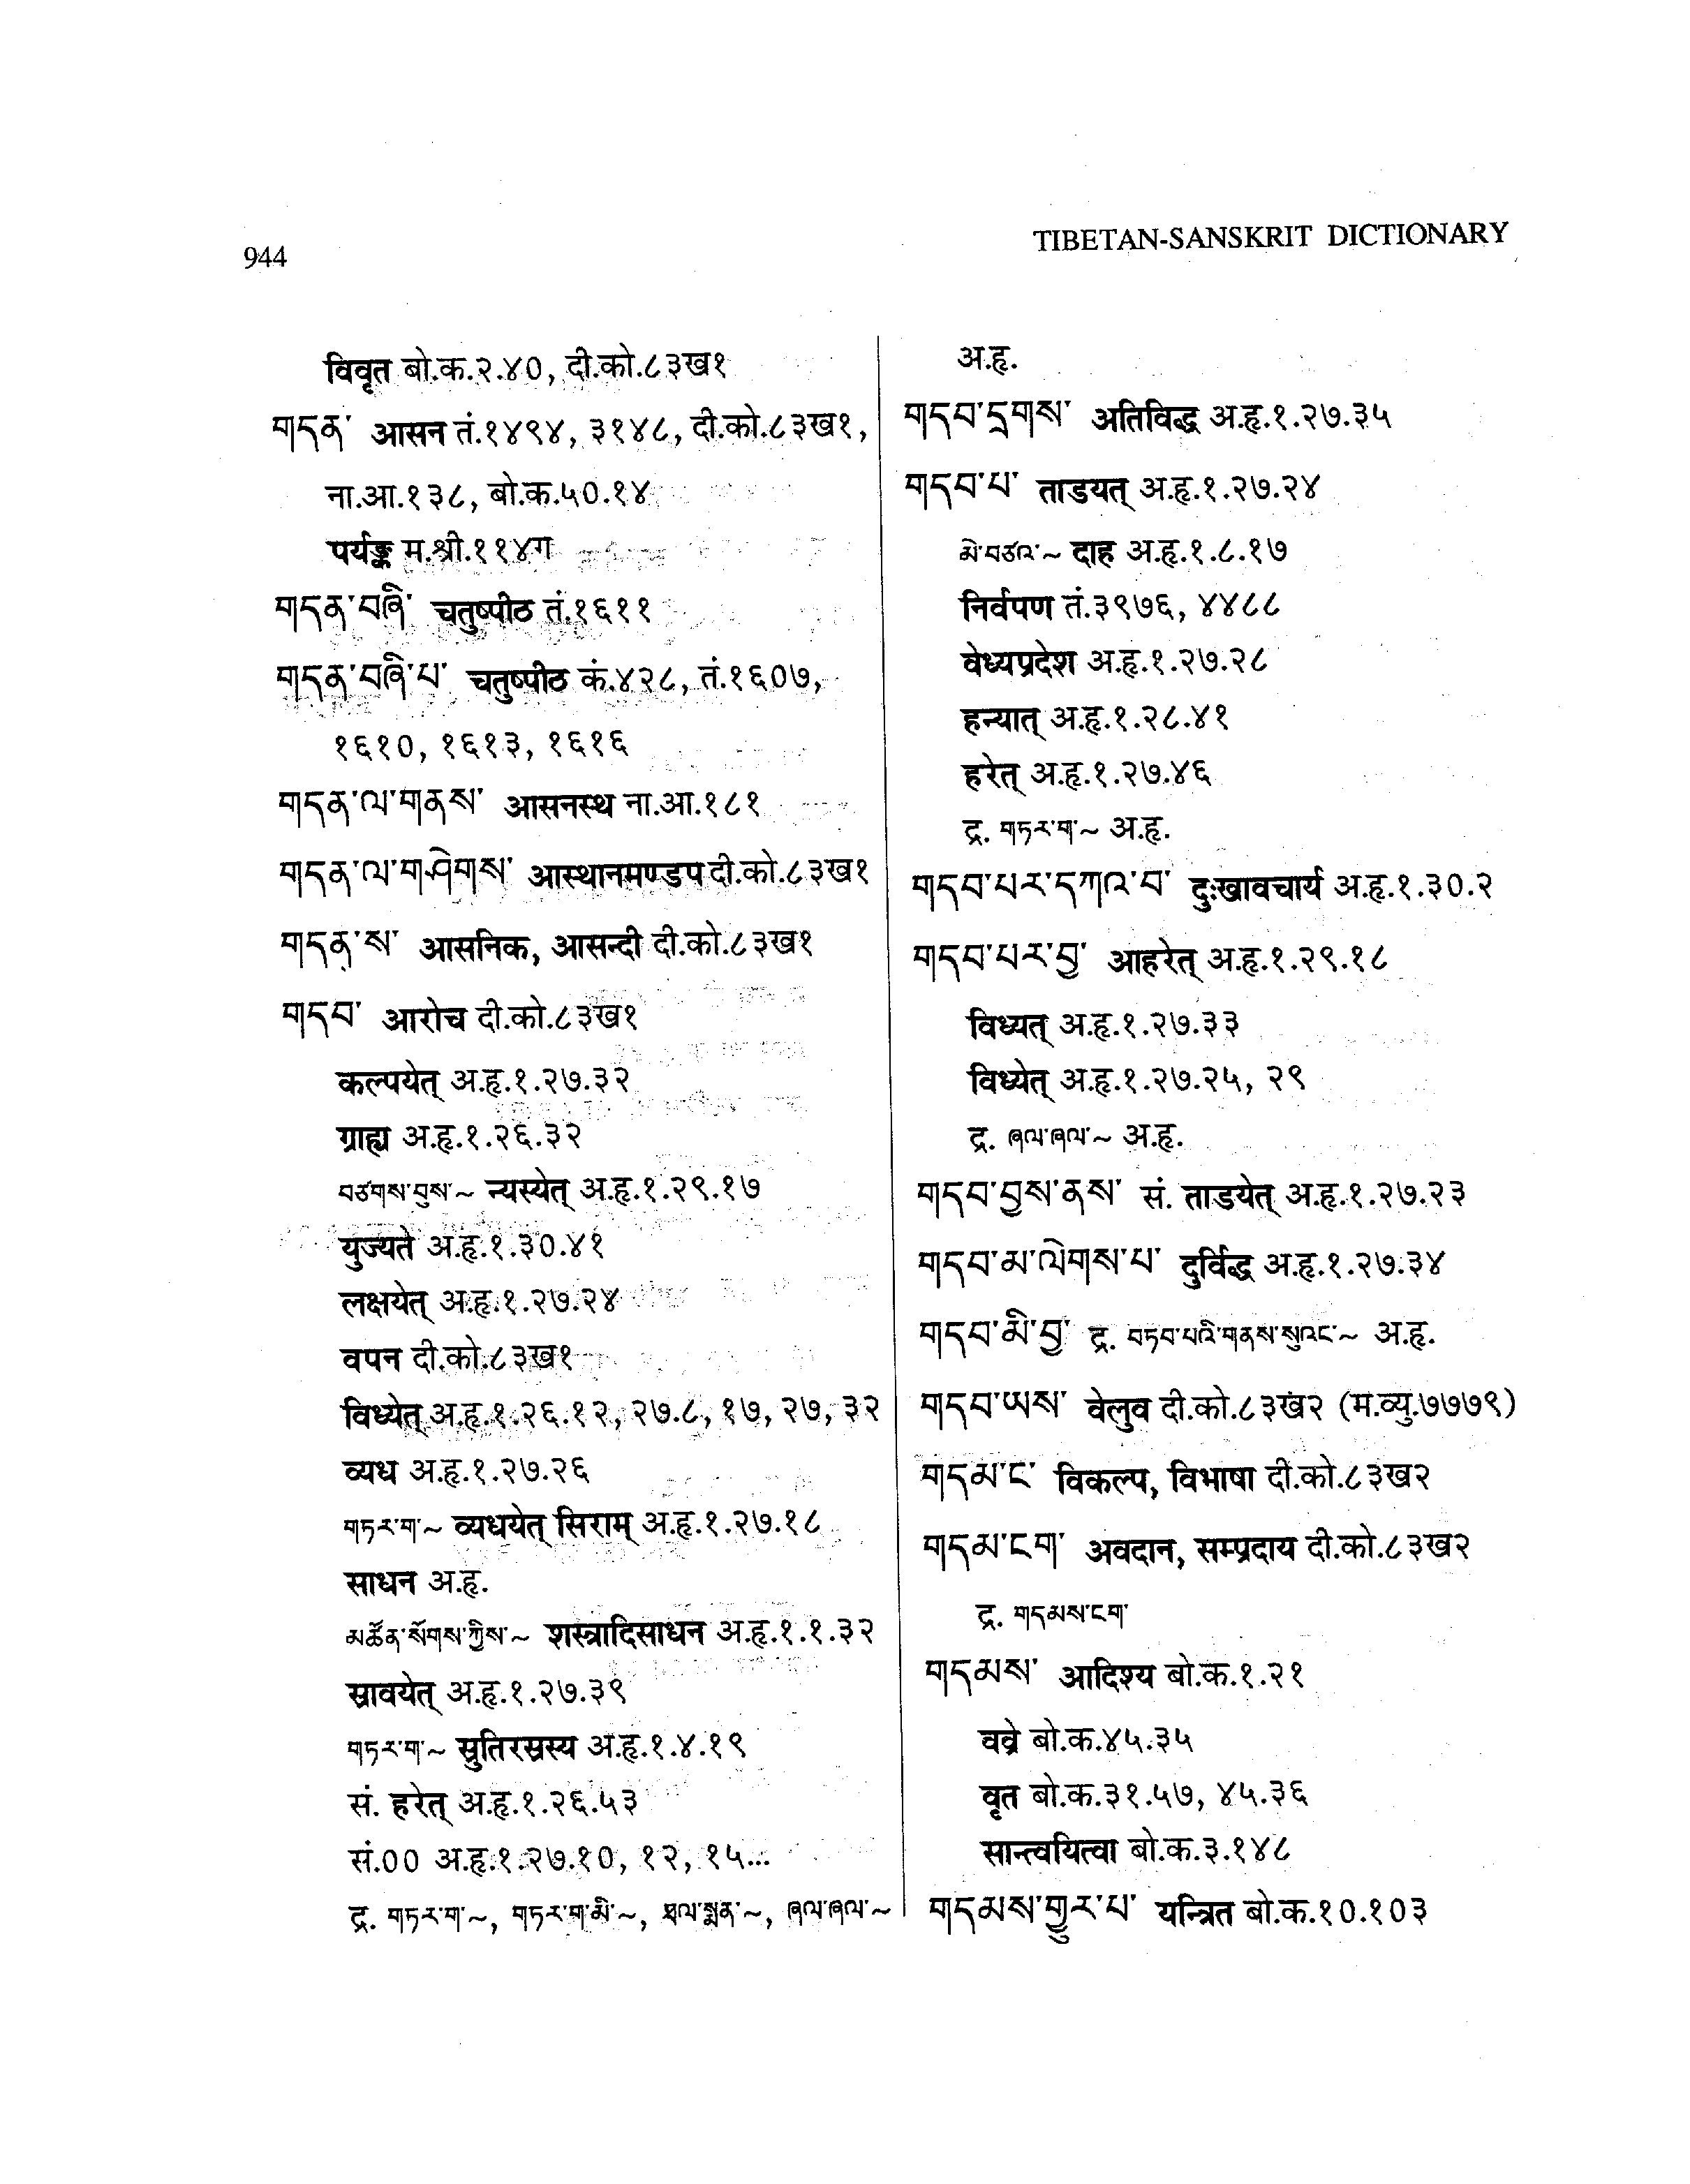 944
TIBETAN-SANSKRIT DICTIONARY
विवृत बो.क.२.४०, दी.को.८३ख१
གདན་ आसन तं.१४९४, ३१४८, दी.को.८३ख१,
ना.आ.१३८, बो.क.५०.१४
पर्यङ्क म.श्री.११४ग
གདན་བཞི་ चतुष्पीठ तं.१६११
གདན་བཞི་པ་ चतुष्पीठ कं.४२८, तं.१६०७,
१६१०, १६१३, १६१६
གདན་ལ་གནས་ आसनस्थ ना.आ.१८१
གདན་ལ་གཤེགས་ आस्थानमण्डप दी.को.८३ख१
གདན་ས་ आसनिक, आसन्दी दी.को.८३ख१
གདབ་ आरोच दी.को.८३ख१
कल्पयेत् अ.हृ.१.२७.३२
ग्राह्य अ.हृ.१.२६.३२
བཙགས་བུས་~ न्यस्येत् अ.हृ.१.२९.१७
युज्यते अ.हृ.१.३०.४१
लक्षयेत् अ.हृ.१.२७.२४
वपन दी.को.८३ख१
विध्येत् अ.हृ.१.२६.१२, २७.८, १७, २७, ३२
व्यध अ.हृ.१.२७.२६
གཏར་ག་~ व्यधयेत् सिराम् अ.हृ.१.२७.१८
साधन अ.हृ.
མཚོན་སོགས་ཀྱིས་~ शस्त्रादिसाधन अ.हृ.१.१.३२
स्रावयेत् अ.हृ.१.२७.३९
གཏར་ག་~ स्रुतिरस्रस्य अ.हृ.१.४.१९
सं. हरेत् अ.हृ.१.२६.५३
सं.०० अ.हृ.१.२७.१०, १२, १५...
द्र. གཏར་ག་~, གཏར་ག་མི་~, ཐལ་སྨན་~, ཞལ་ཞལ་~
अ.हृ.
གདབ་དྲགས་ अतिविद्ध अ.हृ.१.२७.३५
གདབ་པ་ ताडयत् अ.हृ.१.२७.२४
མེ་བཙའ་~ दाह अ.हृ.१.८.१७
निर्वपण तं.३९७६, ४४८८
वेध्यप्रदेश अ.हृ.१.२७.२८
हन्यात् अ.हृ.१.२८.४१
हरेत् अ.हृ.१.२७.४६
द्र. གཏར་ག་~ अ.हृ.
གདབ་པར་དཀའ་བ་ दुःखावचार्य अ.हृ.१.३०.२
གདབ་པར་བྱ་ आहरेत् अ.हृ.१.२९.१८
विध्यत् अ.हृ.१.२७.३३
विध्येत् अ.हृ.१.२७.२५, २९
द्र. ཞལ་ཞལ་~ अ.हृ.
གདབ་བྱས་ནས་ सं. ताडयेत् अ.हृ.१.२७.२३
གདབ་མ་ལེགས་པ་ दुर्विद्ध अ.हृ.१.२७.३४
གདབ་མི་བྱ་ द्र. བཏབ་པའི་གནས་སུའང་~ अ.हृ.
གདབ་ཡས་ वेलुव दी.को.८३ख२ (म.व्यु.७७७९)
གདམ་ང་ विकल्प, विभाषा दी.को.८३ख२
གདམ་ངག་ अवदान, सम्प्रदाय दी.को.८३ख२
द्र. གདམས་ངག་
གདམས་ आदिश्य बो.क.१.२१
वव्रे बो.क.४५.३५
वृत बो.क.३१.५७, ४५.३६
सान्त्वयित्वा बो.क.३.१४८
གདམས་གྱུར་པ་ यन्त्रित बो.क.१०.१०३